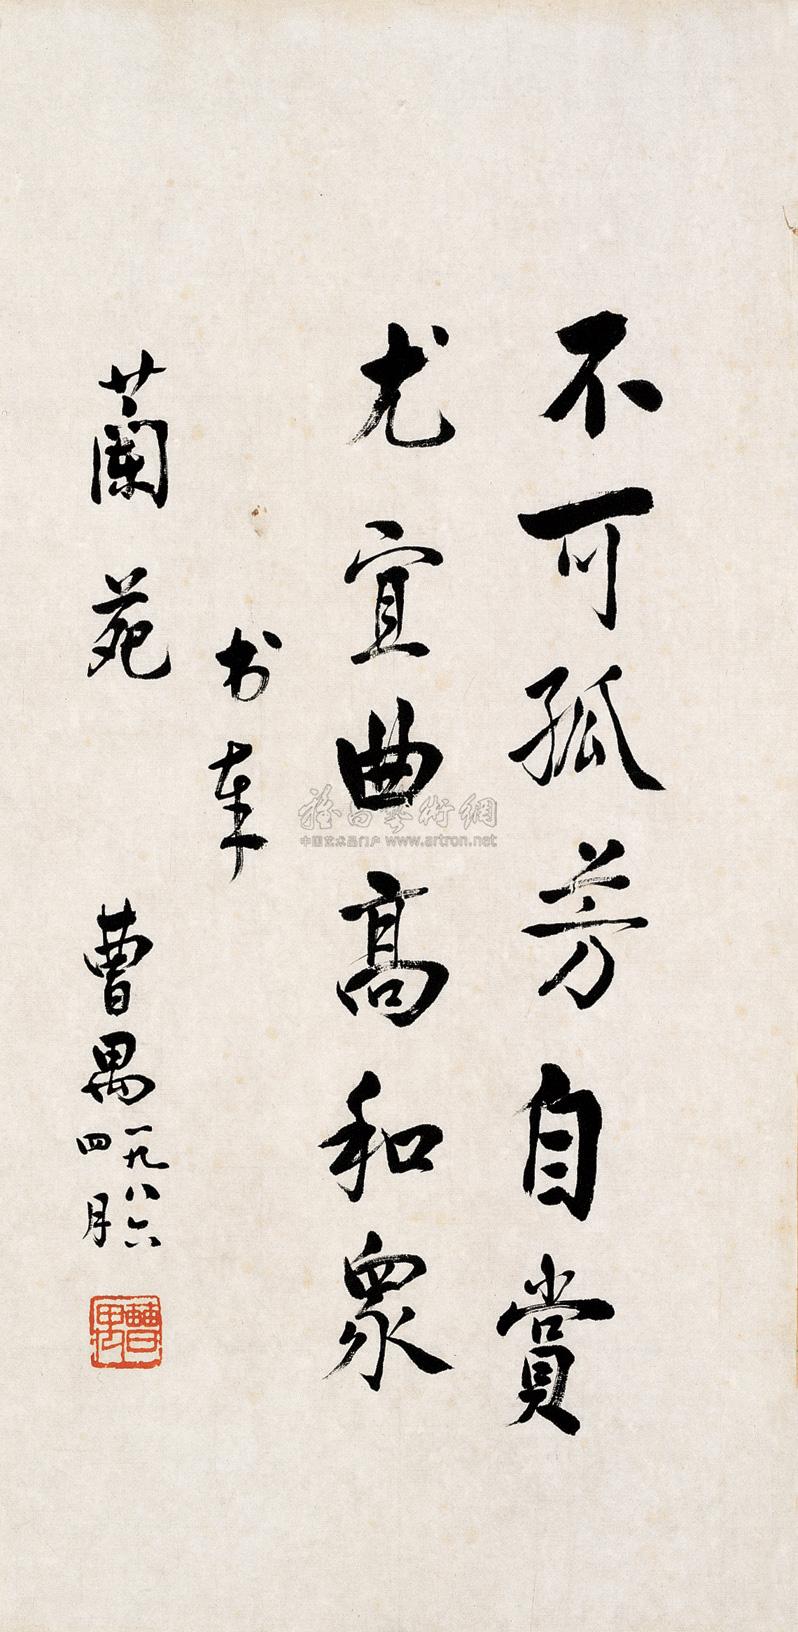 不可孤芳自赏
尤宜曲高和眾
书奉
蘭苑
曹禺一九八六
四月
曹禺
雅昌藝術網
中国艺术品门户 www.artron.net